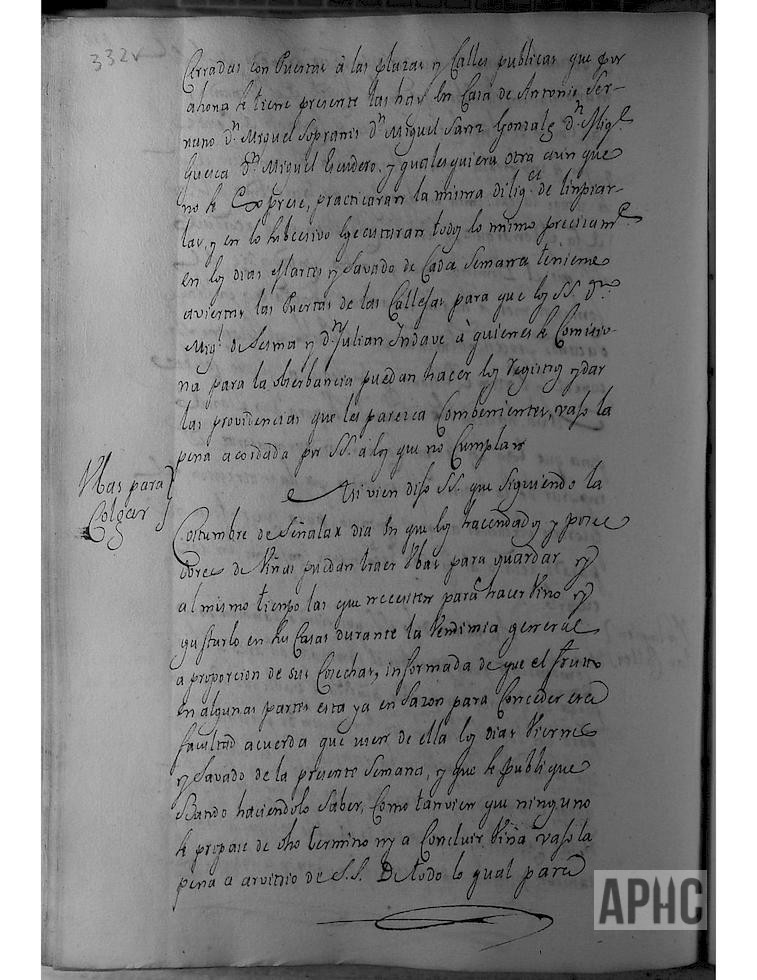 332v
Cerradas con Puertas â las plazas y Calles publicas que por
ahora se tiene presente las hay en Casa de Antonio Ser-
rano Dn. Miguel Sopranis Dn. Miguel Sanz Gonzalz Dn. Migl.
huesca Dn. Miguel Escudero, y qualesquiera otra aun que
no se Exprese, practicaran la misma dilig.cia de limpiar-
las, y en lo subcesivo executaran todos lo mismo precisamte.
en los dias Martes y Savado de Cada Semana teniendo
aviertas las Puertas de las Callejas para que los SS. Dn.
Migl. de Sesma y Dn. Julian Yndave â quienes se Comisio-
na para la obserbancia puedan hacer los registros y dar
las providencias que les parezca Combenientes, vajo la
pena acordada por SS. a los que no Cumplan
Vbas para
Colgar
Asi vien dijo SS. que siguiendo la
Costumbre de Señalar dia en que los hacendados y posee
dores de Viñas puedan traer Vbas para guardar y
al mismo tienpo las que necesiten para hacer Vino y
gastarlo en sus Casas durante la Vendimia general
a proporcion de sus Cosechas, informada de que el fruto
en algunas partes esta ya en sazon para Conceder esta
facultad acuerda que usen de ella los dias Viernes
y Savado de la presente Semana, y que se publique
Bando haciendolo saber, Como tanvien que ninguno
se propase de dho termino ny a Concluir Viña vajo la
pena a arvitrio de S.S. De todo lo qual para
APHC